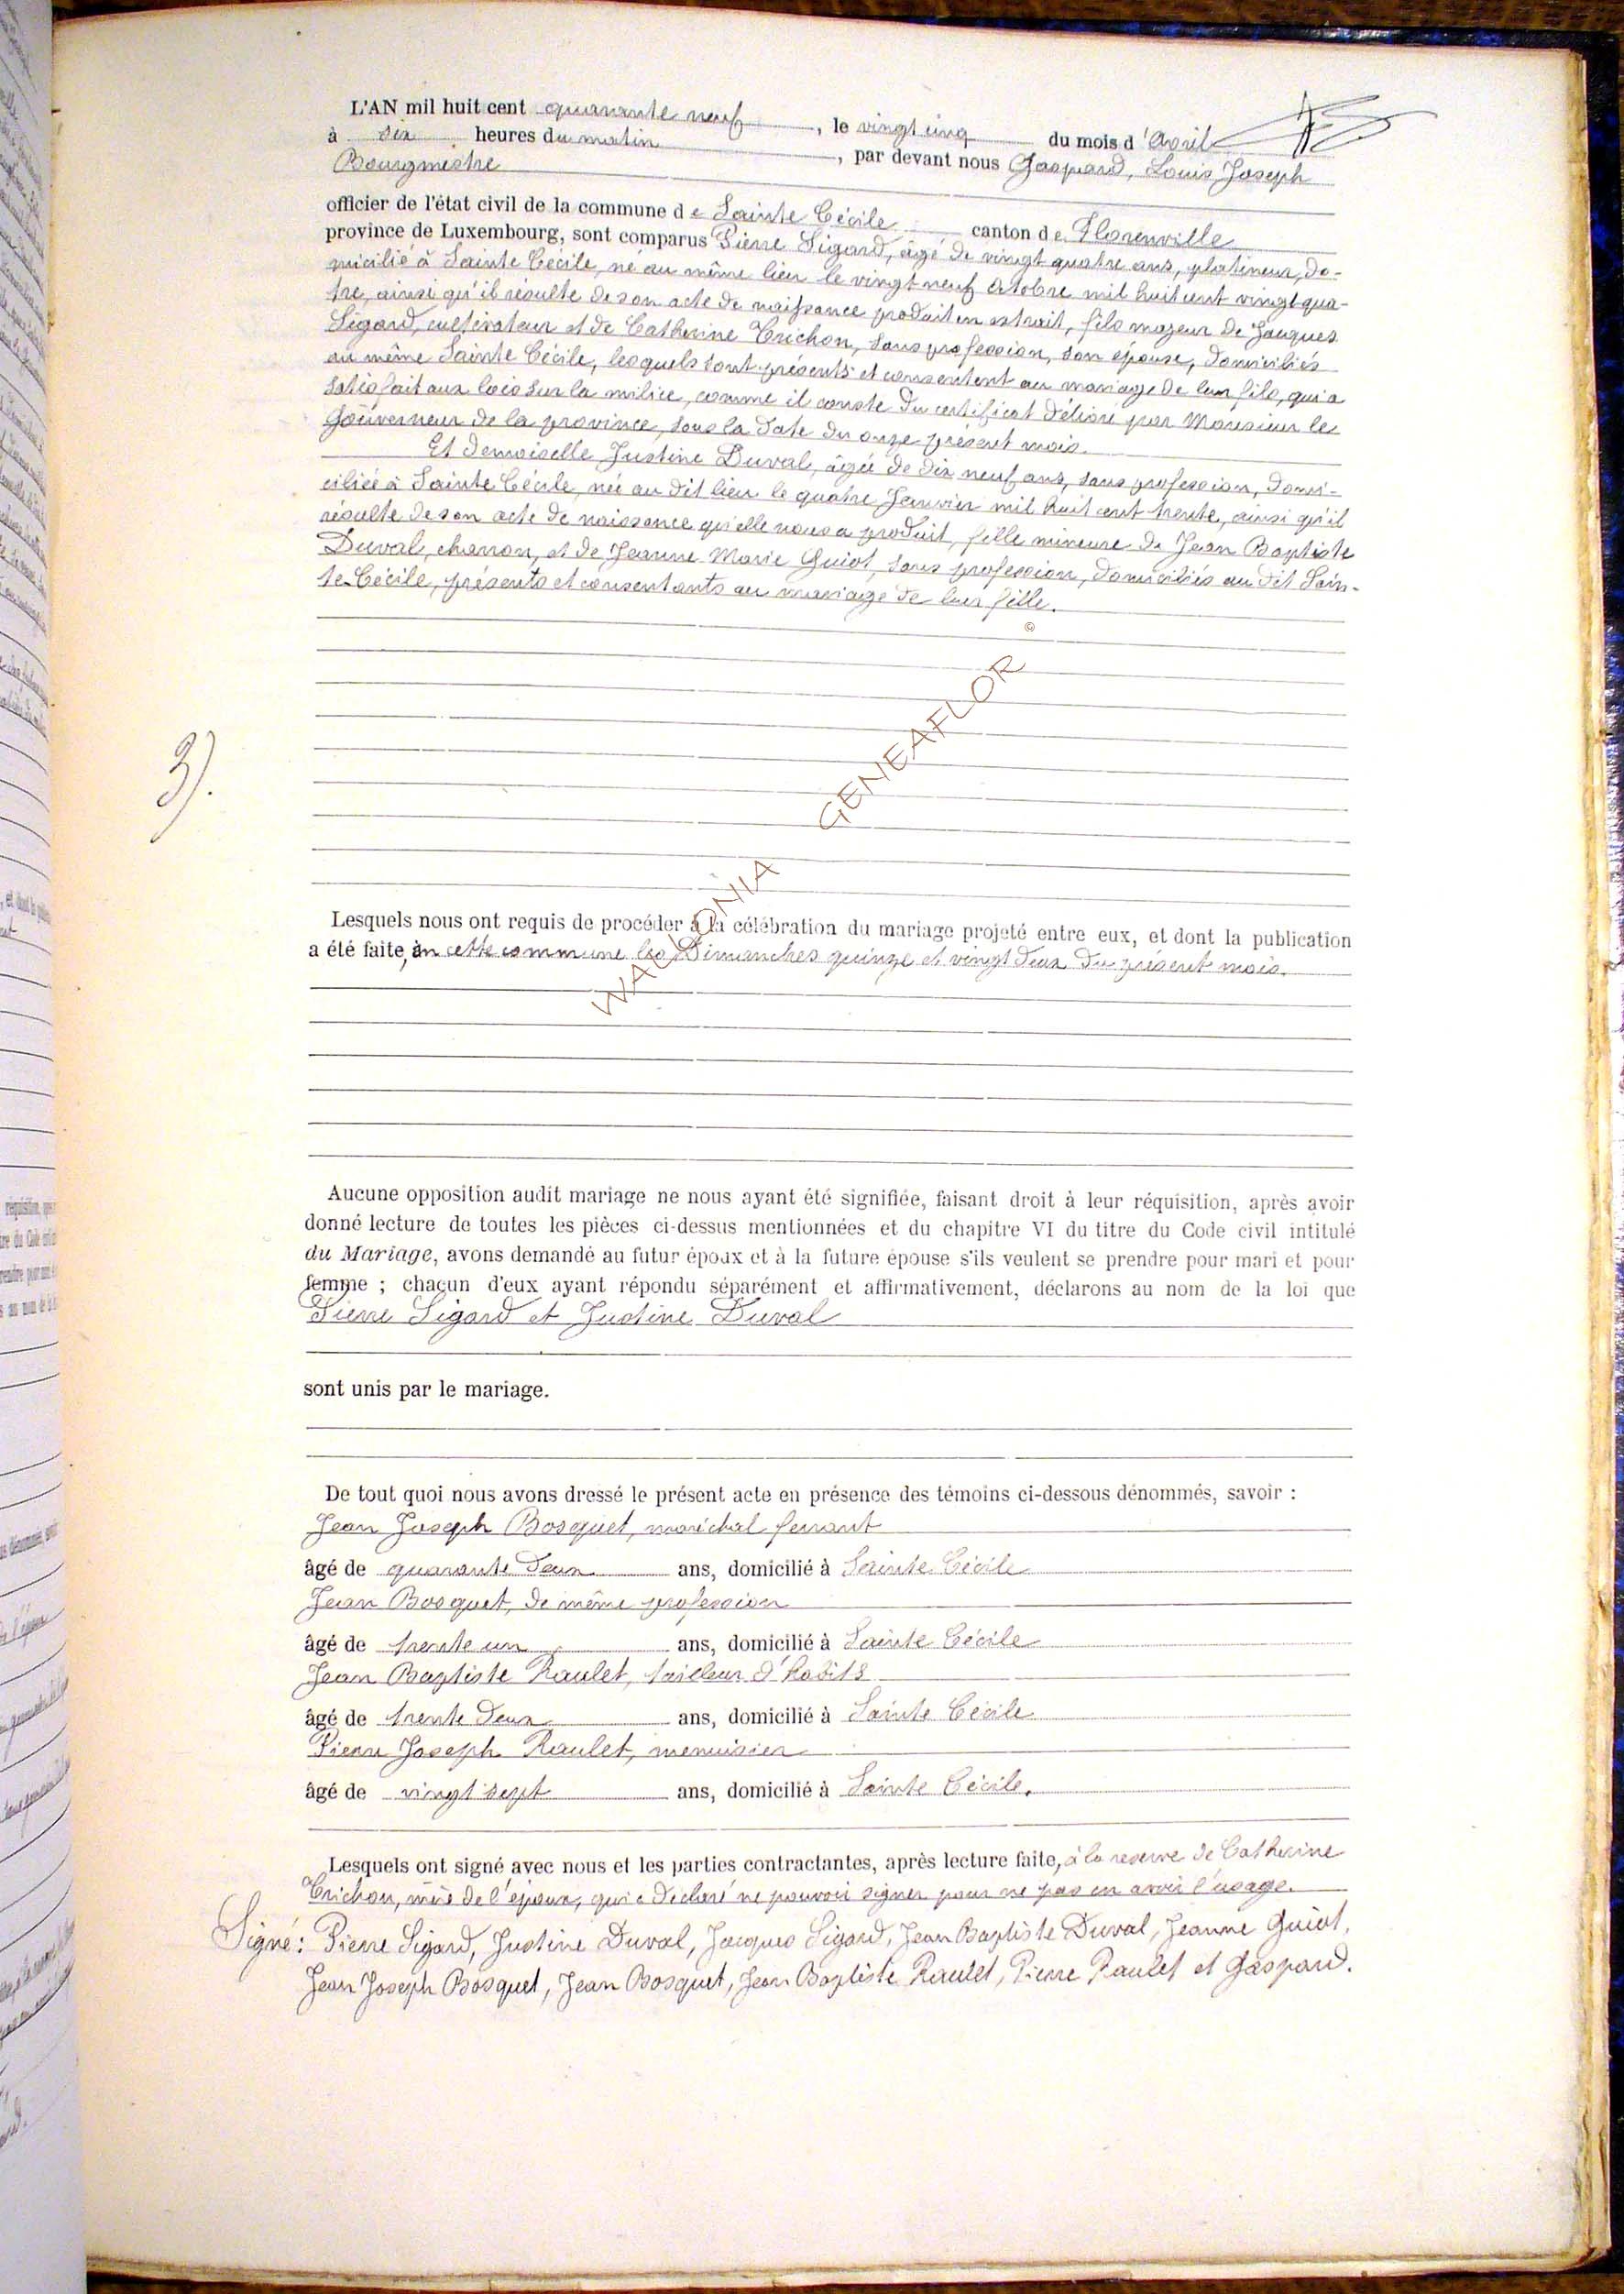 L'AN mil huit cent quarante neuf, le vingt cinq du mois d'Avril
à six heures du matin, par devant nous Gaspard, Louis Joseph
Bourgmestre
officier de l'état civil de la commune de Sainte Cécile canton de Florenville
province de Luxembourg, sont comparus Pierre Sigard, âgé de vingt quatre ans, platineur, do-
micilié à Sainte Cécile, né au même lieu le vingt neuf Octobre mil huit cent vingt qua-
tre, ainsi qu'il résulte de son acte de naissance produit en extrait, fils majeur de Jacques
Sigard, cultivateur et de Catherine Crichon, sans profession, son épouse, domiciliés
au même Sainte Cécile, lesquels sont présents et consentent au mariage de leur fils, qui a
satisfait aux lois sur la milice, comme il conste du certificat délivré par Monsieur le
Gouverneur de la province, sous la date du onze présent mois.
Et demoiselle Justine Duval, âgée de dix neuf ans, sans profession, domi-
ciliée à Sainte Cécile, née au dit lieu le quatre Janvier mil huit cent trente, ainsi qu'il
résulte de son acte de naissance qu'elle nous a produit, fille mineure de Jean Baptiste
Duval, charron, et de Jeanne Marie Guiot, sans profession, domiciliés au dit Sain-
te Cécile, présents et consentants au mariage de leur fille.
3).
WALLONIA GENEAFLOR ©
Lesquels nous ont requis de procéder à la célébration du mariage projeté entre eux, et dont la publication
a été faite, en cette commune les Dimanches quinze et vingt deux du présent mois.
Aucune opposition audit mariage ne nous ayant été signifiée, faisant droit à leur réquisition, après avoir
donné lecture de toutes les pièces ci-dessus mentionnées et du chapitre VI du titre du Code civil intitulé
du Mariage, avons demandé au futur époux et à la future épouse s'ils veulent se prendre pour mari et pour
femme ; chacun d'eux ayant répondu séparément et affirmativement, déclarons au nom de la loi que
Pierre Sigard et Justine Duval
sont unis par le mariage.
De tout quoi nous avons dressé le présent acte en présence des témoins ci-dessous dénommés, savoir :
Jean Joseph Bosquet, maréchal ferrant
âgé de quarante deux ans, domicilié à Sainte Cécile
Jean Bosquet, de même profession
âgé de trente un ans, domicilié à Sainte Cécile
Jean Baptiste Raulet, tailleur d'habits
âgé de trente deux ans, domicilié à Sainte Cécile
Pierre Joseph Raulet, menuisier
âgé de vingt sept ans, domicilié à Sainte Cécile.
Lesquels ont signé avec nous et les parties contractantes, après lecture faite, à la reserve de Catherine
Crichon, mère de l'époux, qui a declaré ne pouvoir signer pour ne pas en avoir l'usage.
Signé: Pierre Sigard, Justine Duval, Jacques Sigard, Jean Baptiste Duval, Jeanne Guiot,
Jean Joseph Bosquet, Jean Bosquet, Jean Baptiste Raulet, Pierre Raulet et Gaspard.